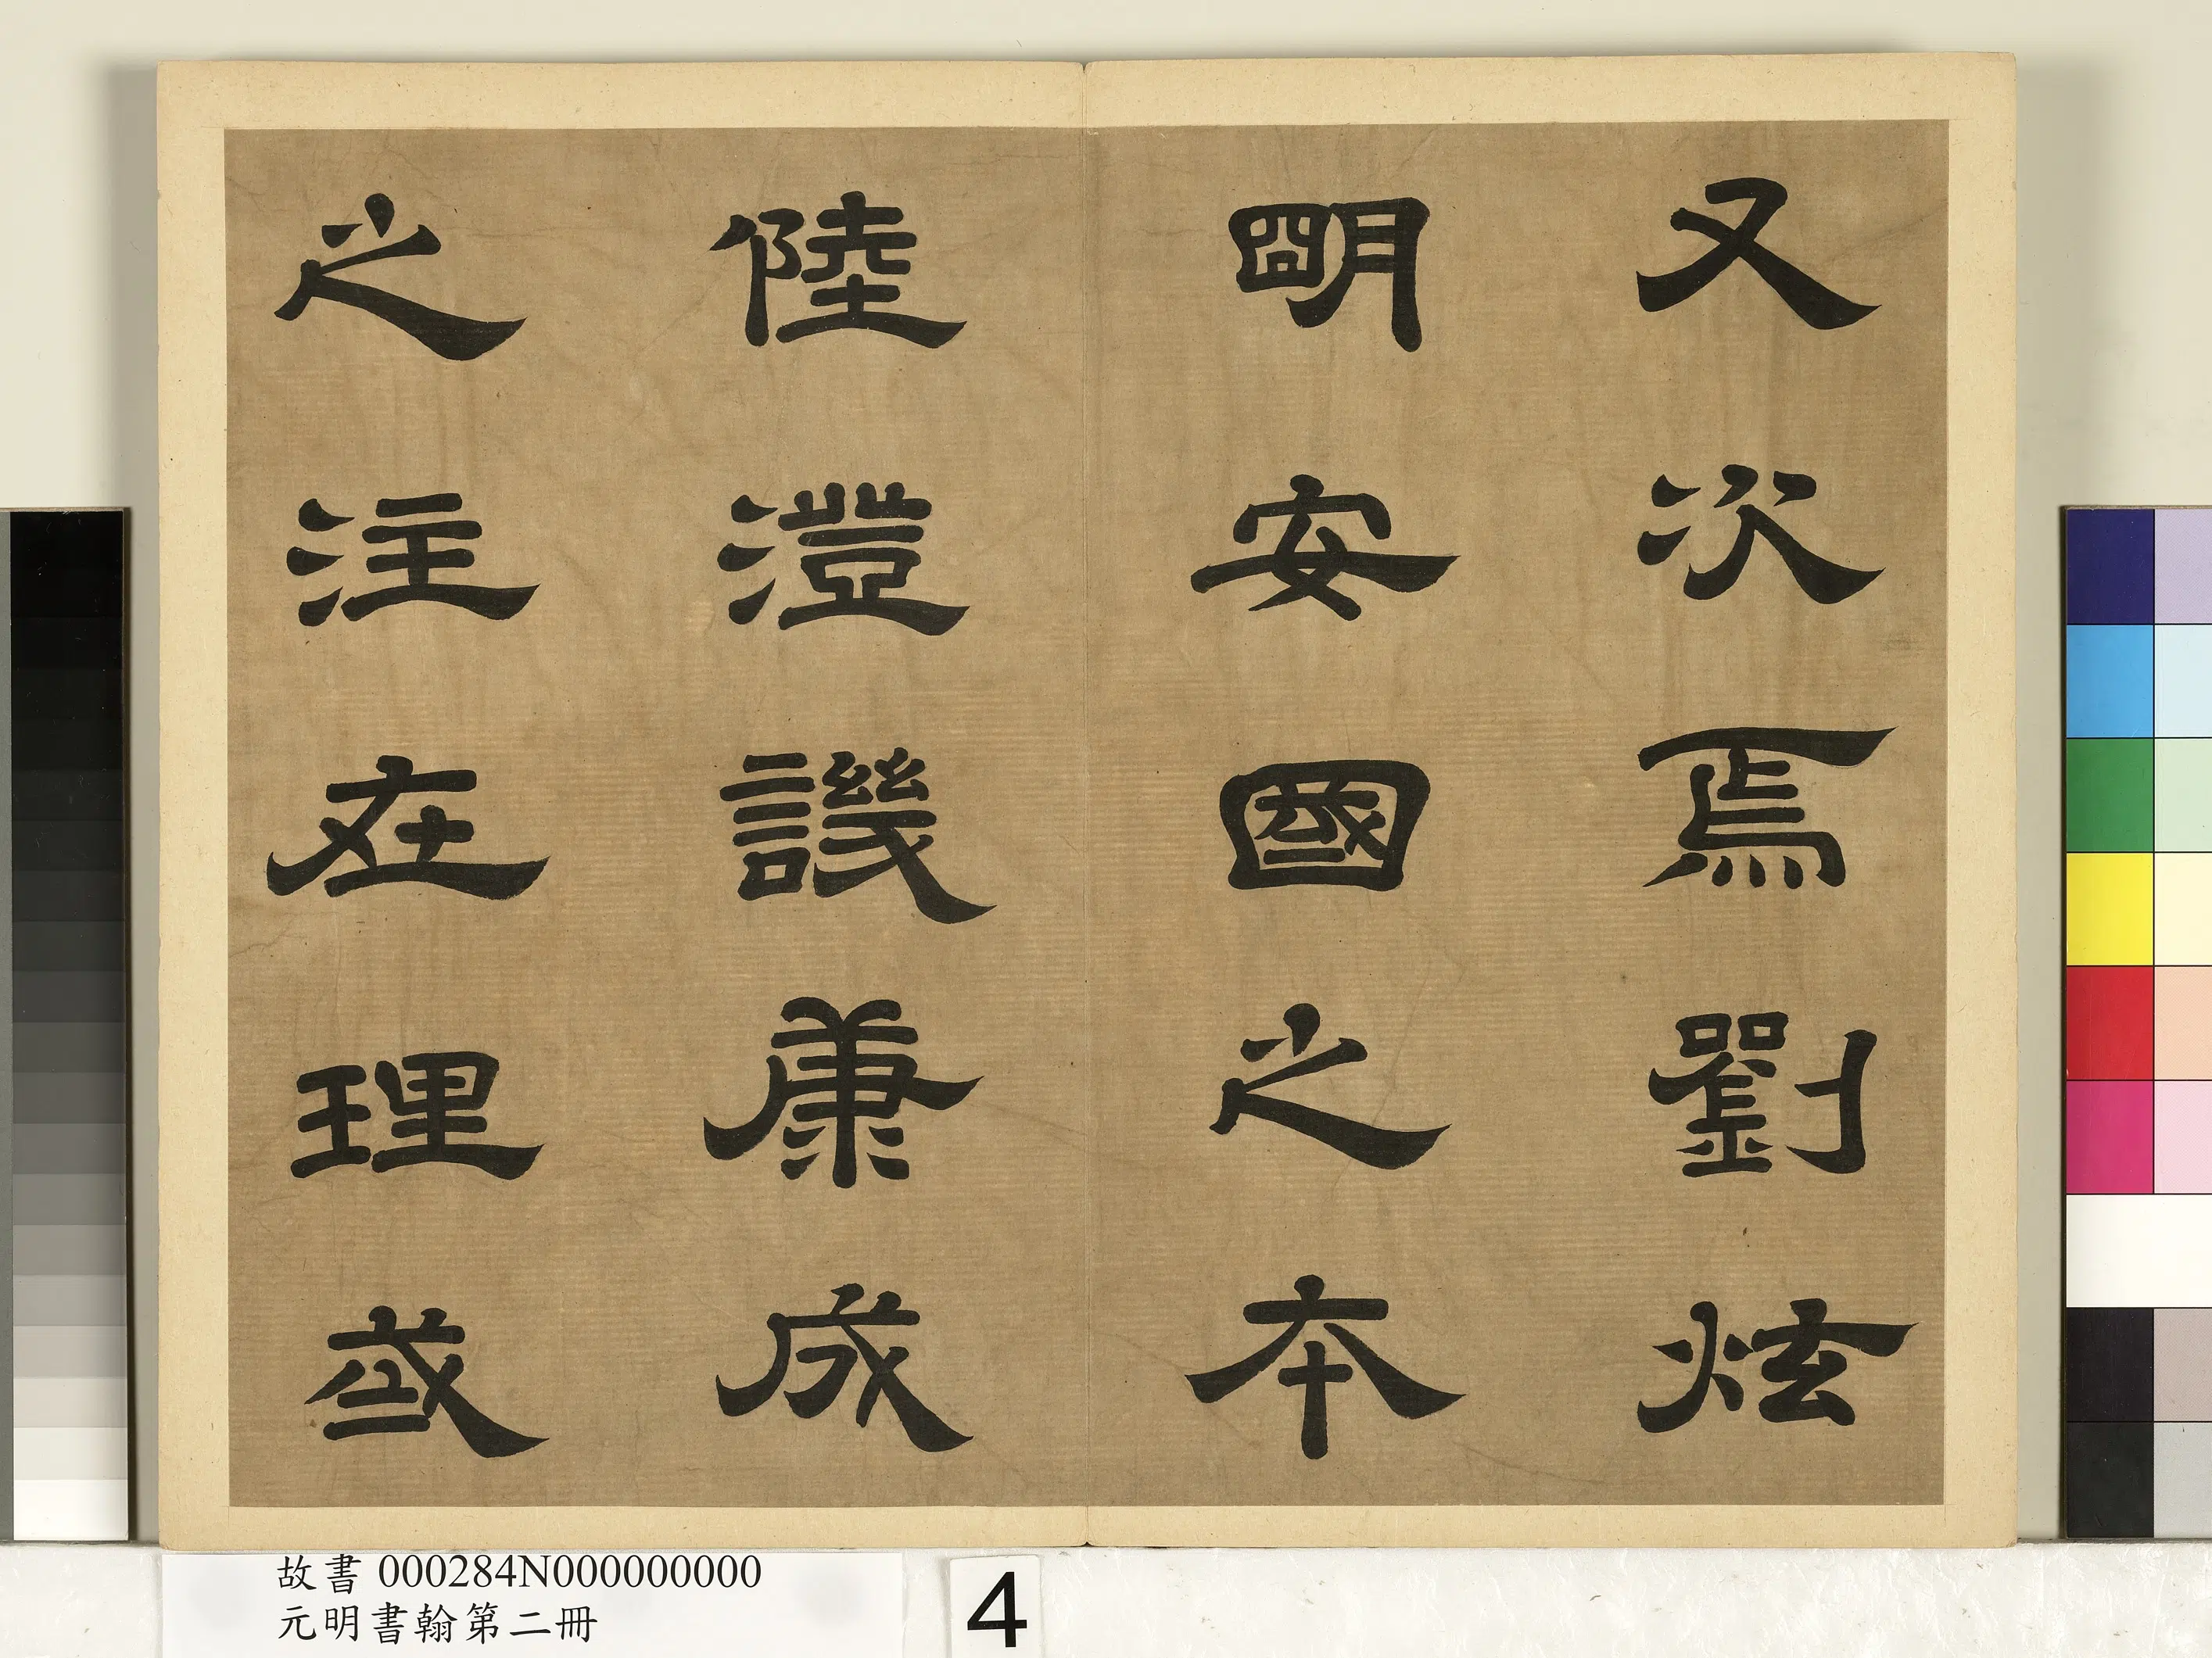 又次焉劉炫
明安國之本
陸澄譏康成
之注在理或
故書 000284N000000000
元明書翰第二冊
4